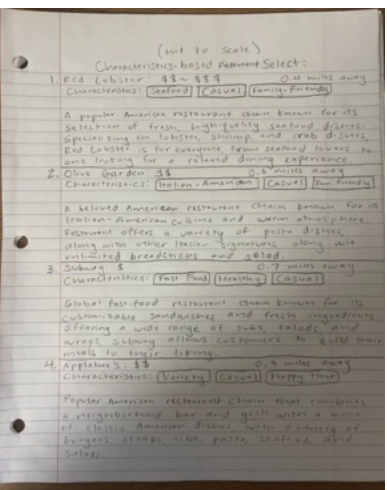 (not to scale)
Characteristics-based Restaurant Select:
1. Red Lobster: $$~$$$ 0.4 miles away
Characteristics: Seafood Casual Family-Friendly
A popular American restaurant chain known for its
selection of fresh, high-quality seafood dishes.
Specializing in lobster, shrimp, and crab dishes,
Red Lobster is for everyone, from seafood lovers to
one looking for a relaxed dining experience.
2. Olive Garden: $$ 0.6 miles away
Characteristics: Italian-American Casual Friendly
A beloved American restaurant chain known for its
Italian-American cuisine and warm atmosphere.
Restaurant offers a variety of pasta dishes,
along with other Italian signatures along wit
unlimited breadsticks and salad.
3. Subway: $ 0.7 miles away
Characteristics: Fast Food Healthy Casual
Global fast-food restaurant chain known for its
customizable sandwiches and fresh ingredients.
Offering a wide range of subs, salads and
wraps, Subway allows customers to build their
meals to their liking.
4. Applebee's: $$ 0.9 miles away
Characteristics: Variety Casual Happy Hour
Popular American restaurant chain that combines
a neighborhood bar and grill with a menu
of classic American dishes, with a variety of
burgers, steaks, ribs, pasta, seafood, and
salads.